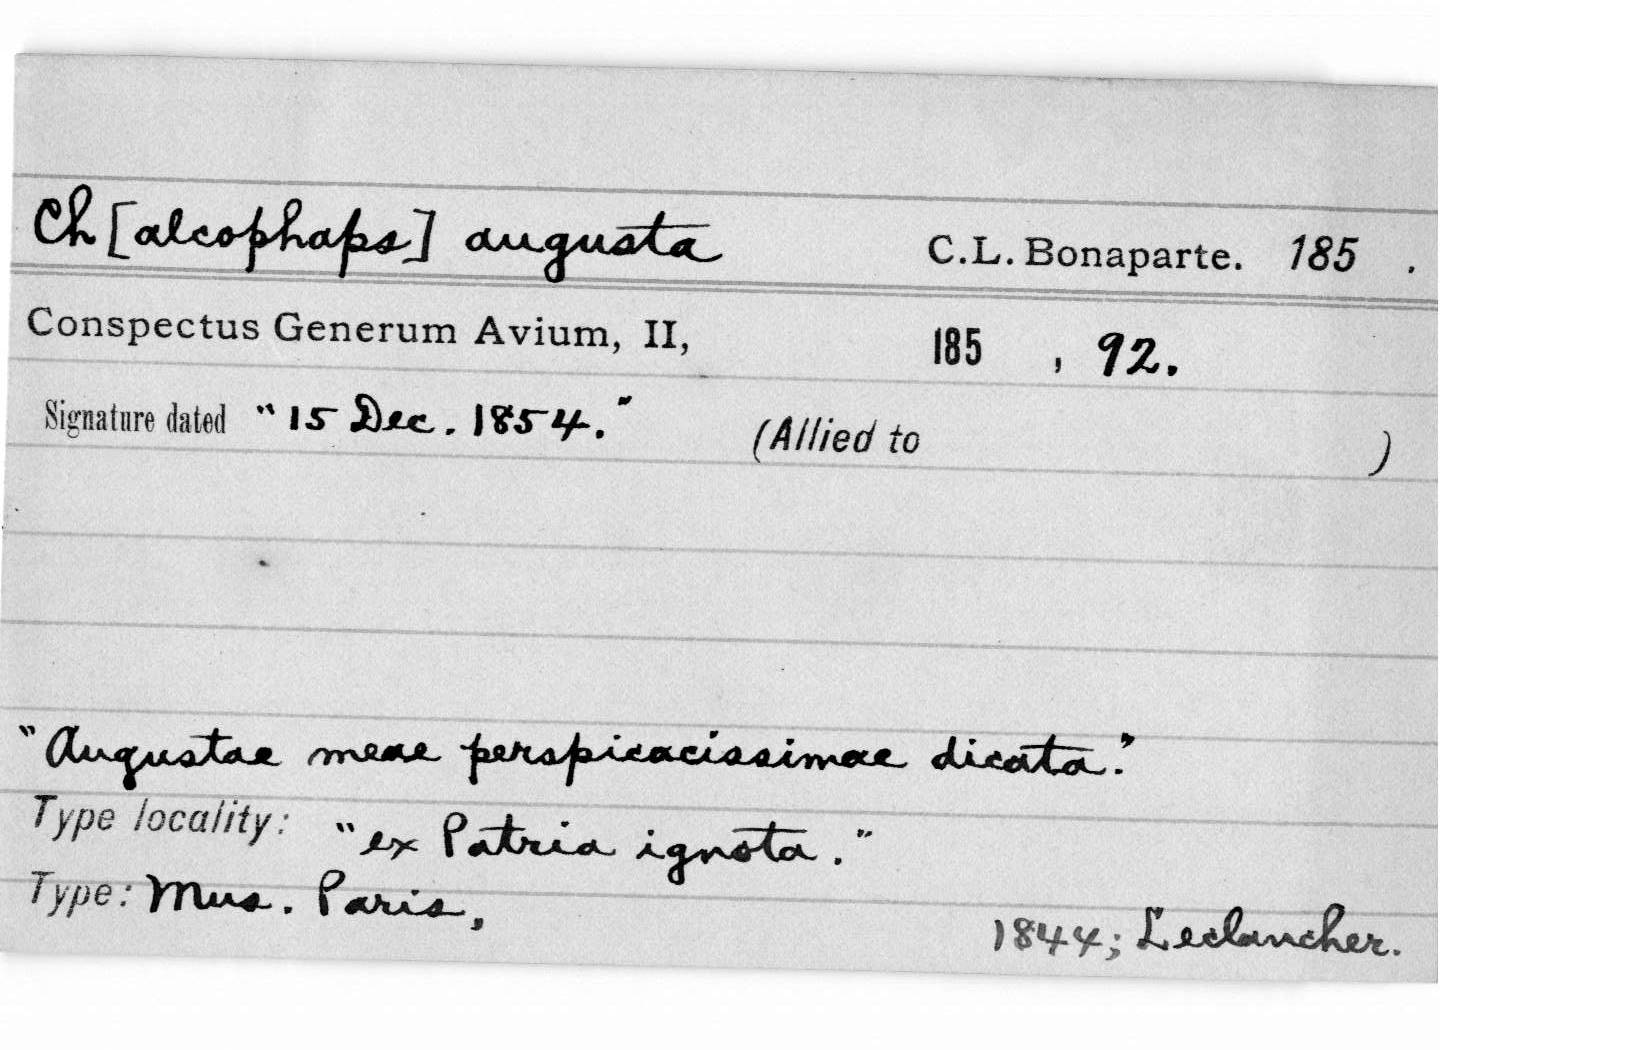 Ch[alcophaps] augusta C.L. Bonaparte. 185 .
Conspectus Generum Avium, II, 185 , 92.
Signature dated "15 Dec. 1854." (Allied to )
"Augustae meae perspicacissimae dicata."
Type locality: "ex Patria ignota."
Type: Mus. Paris, 1844; Leclancher.